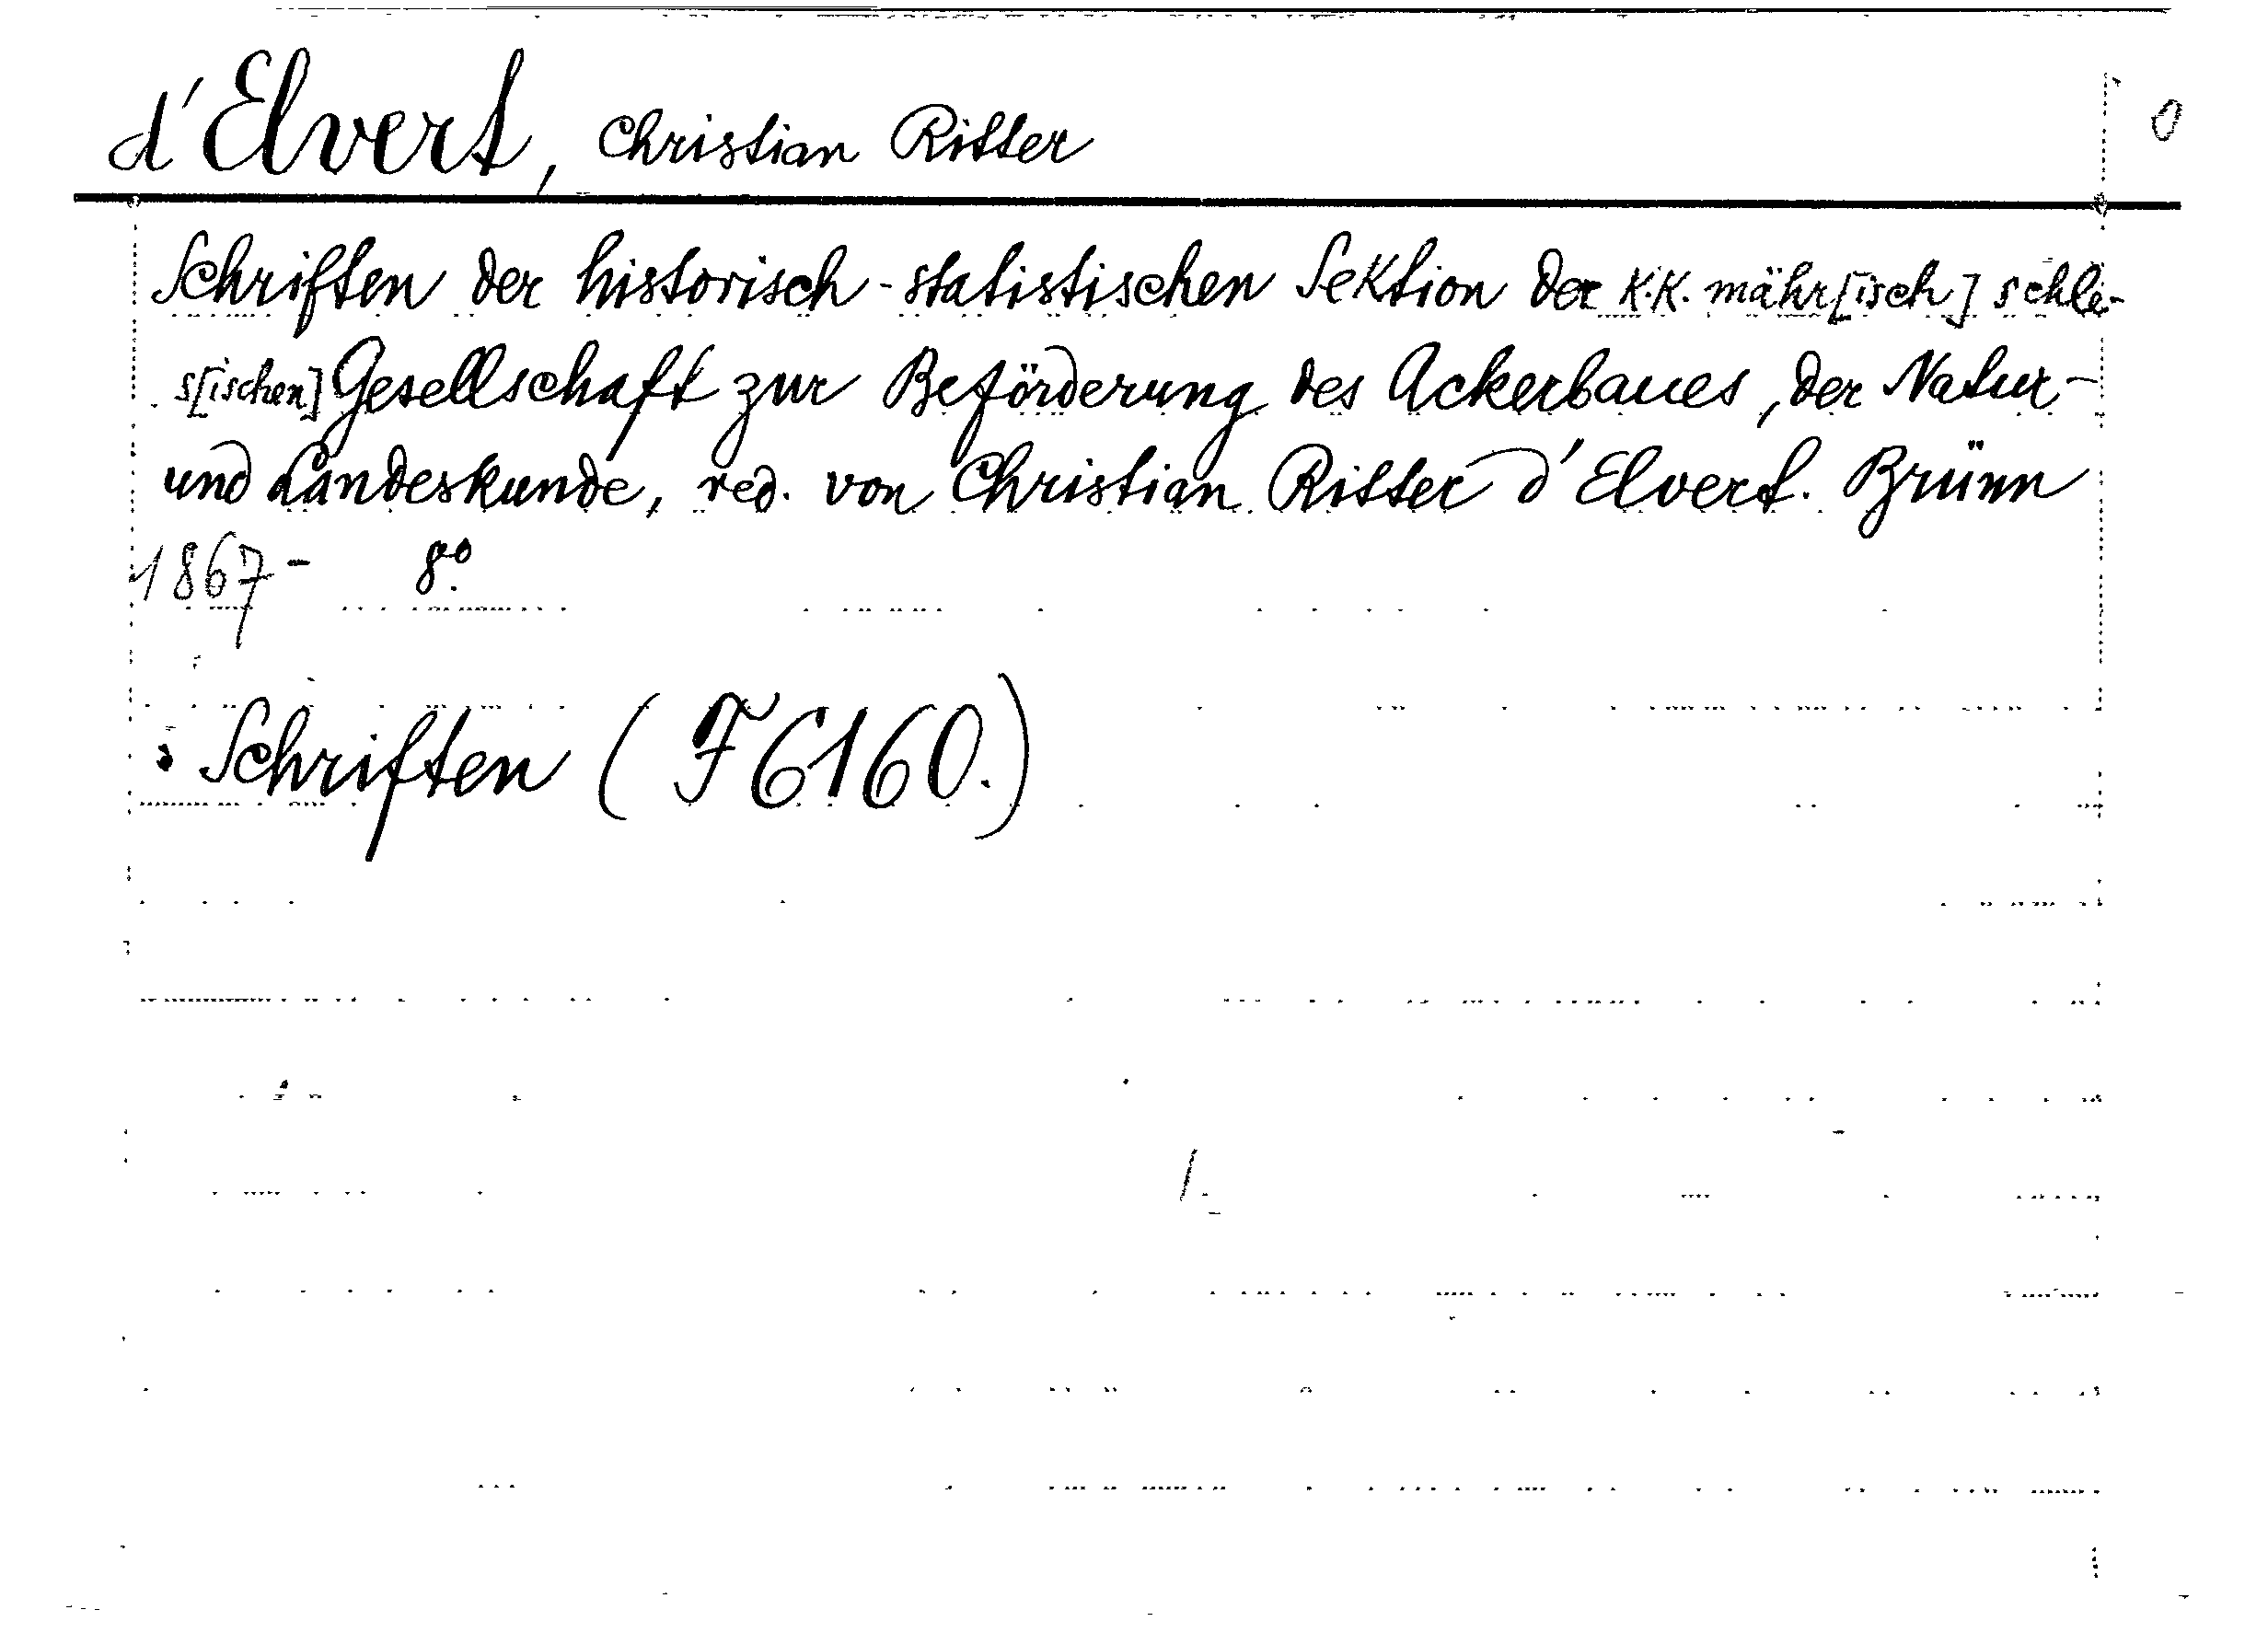 d'Elvert, Christian Ritter 0
Schriften der historisch-statistischen Sektion der K.K. mähr[isch] schle-
s[ischen] Gesellschaft zur Beförderung des Ackerbaues, der Natur-
und Landeskunde, red. von Christian Ritter d'Elvert. Brünn
1867- 8°.
: Schriften (F6160.)